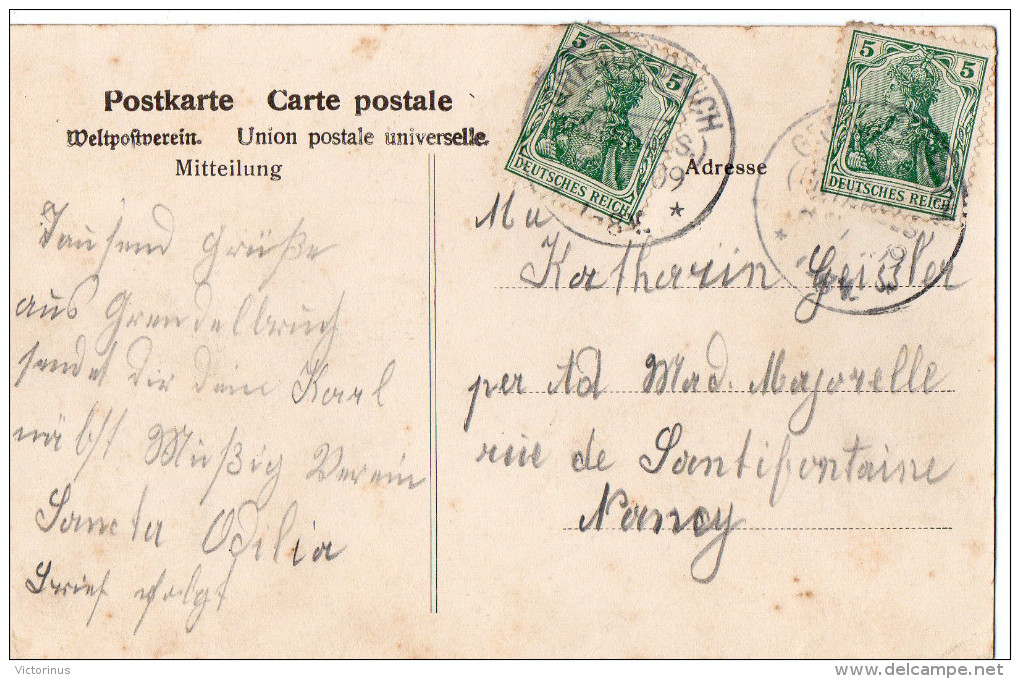 Postkarte Carte postale
Weltpostverein. Union postale universelle.
Mitteilung
Adresse
5 5
DEUTSCHES REICH
5 5
DEUTSCHES REICH
09
Tausend Grüße
aus Grendelbruch
sendet dir dein Karl
näbst Mußig Verein
Sancta Odilia
Brief folgt
Katharin Geissler
per Ad Mad. Majorelle
rue de Santifontaine
Nancy
Victorinus
www.delcampe.net